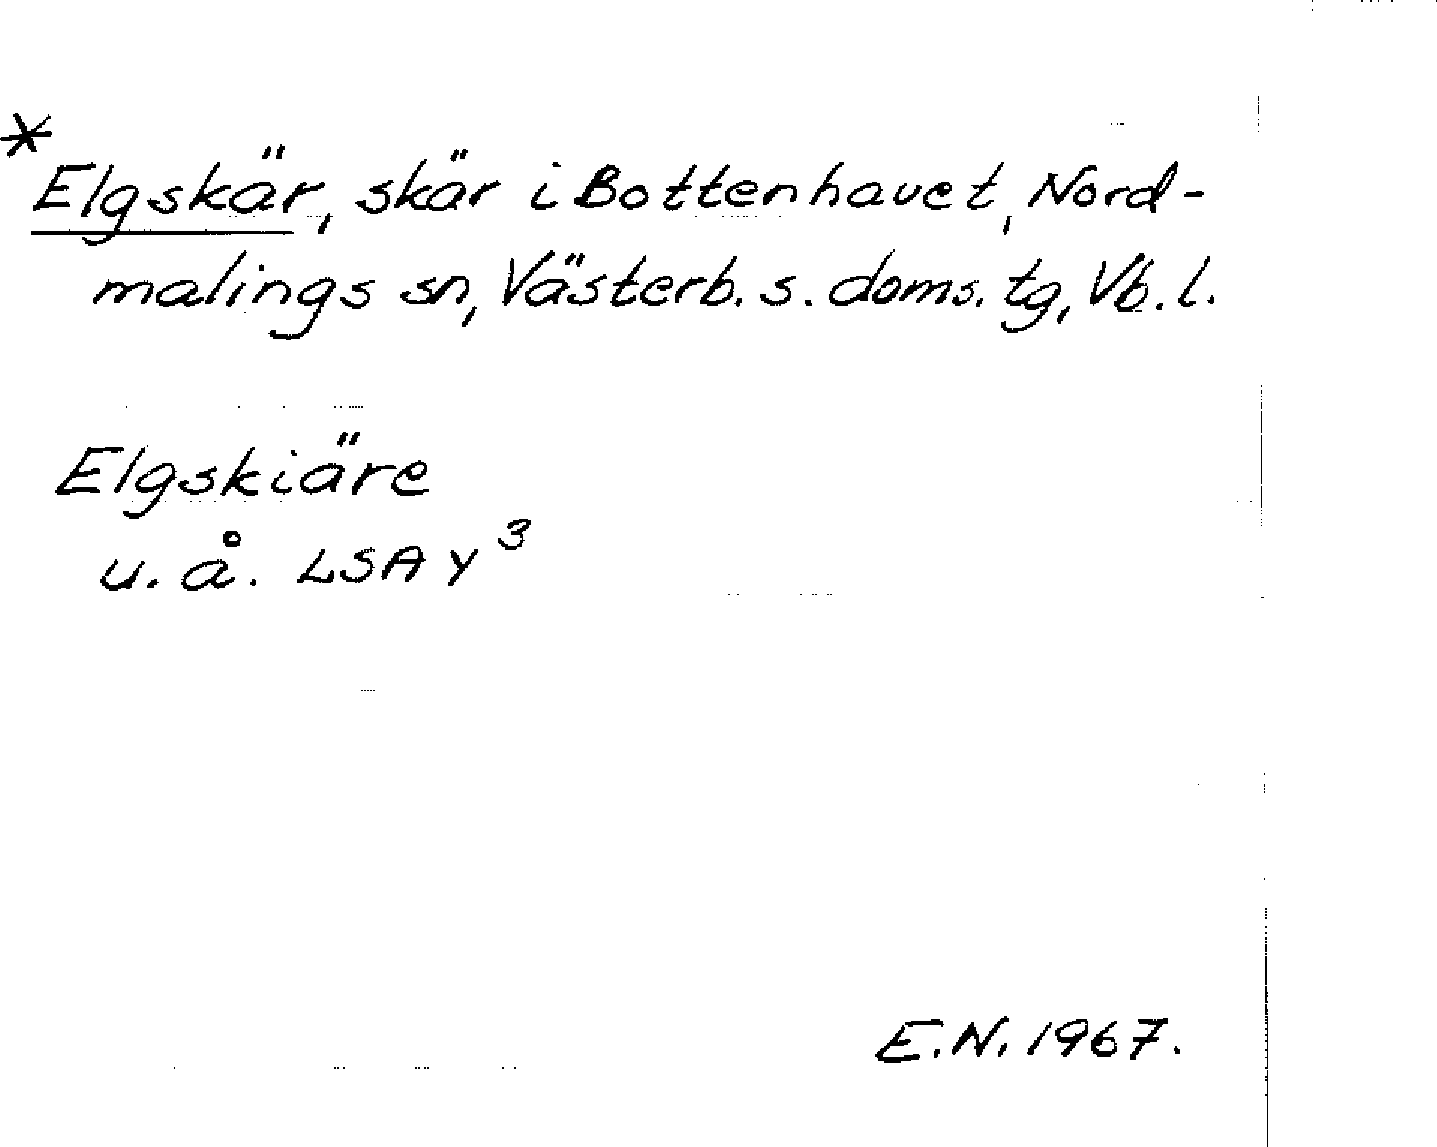 *Elgskär, skär i Bottenhavet, Nord-
malings sn, Västerb. s. doms. tg, Vb. l.
Elgskiäre
u. å. LSA Y³
E.N. 1967.